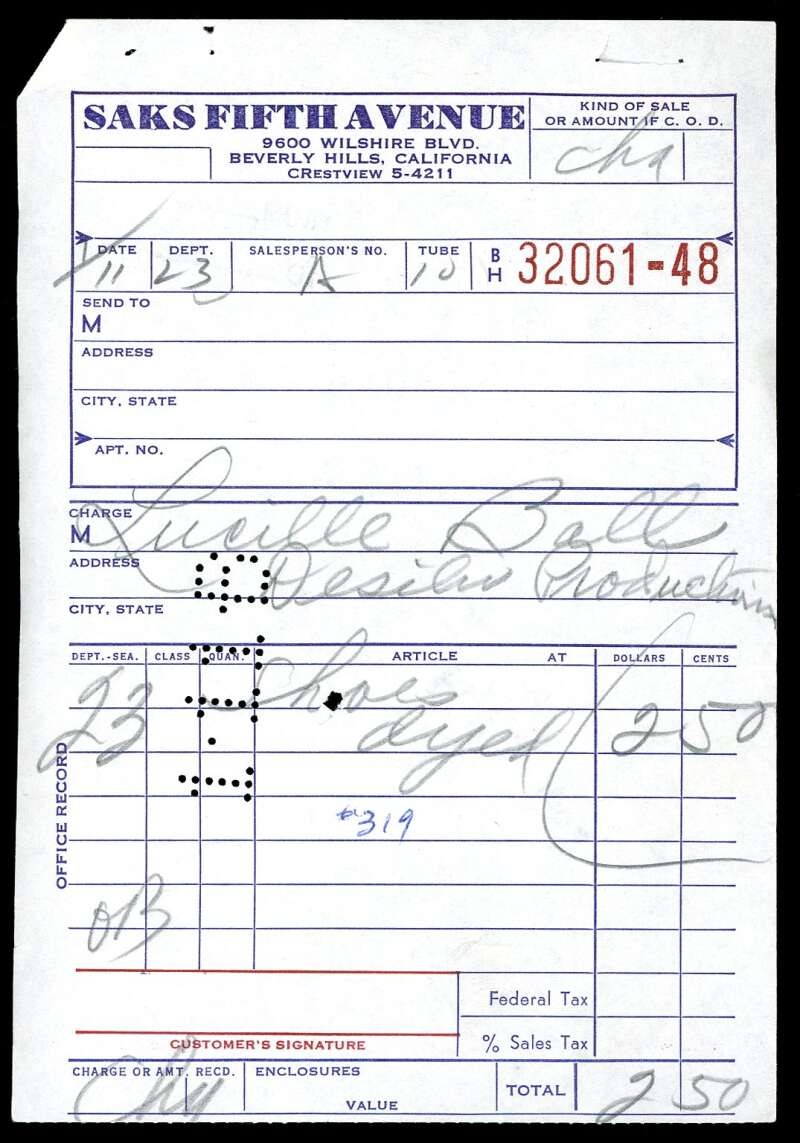 SAKS FIFTH AVENUE
9600 WILSHIRE BLVD.
BEVERLY HILLS, CALIFORNIA
CRESTVIEW 5-4211
KIND OF SALE
OR AMOUNT IF C. O. D.
cha
DATE DEPT. SALESPERSON'S NO. TUBE BH 32061-48
11 23 A 10
SEND TO
M
ADDRESS
CITY, STATE
APT. NO.
CHARGE
M Lucille Ball
ADDRESS Desilu Productions
CITY, STATE
DEPT.-SEA. CLASS QUAN. ARTICLE AT DOLLARS CENTS
23 Shoes
dyed 2 50
#319
OB
OFFICE RECORD
Federal Tax
% Sales Tax
CUSTOMER'S SIGNATURE
CHARGE OR AMT. RECD. ENCLOSURES
VALUE
TOTAL 2 50